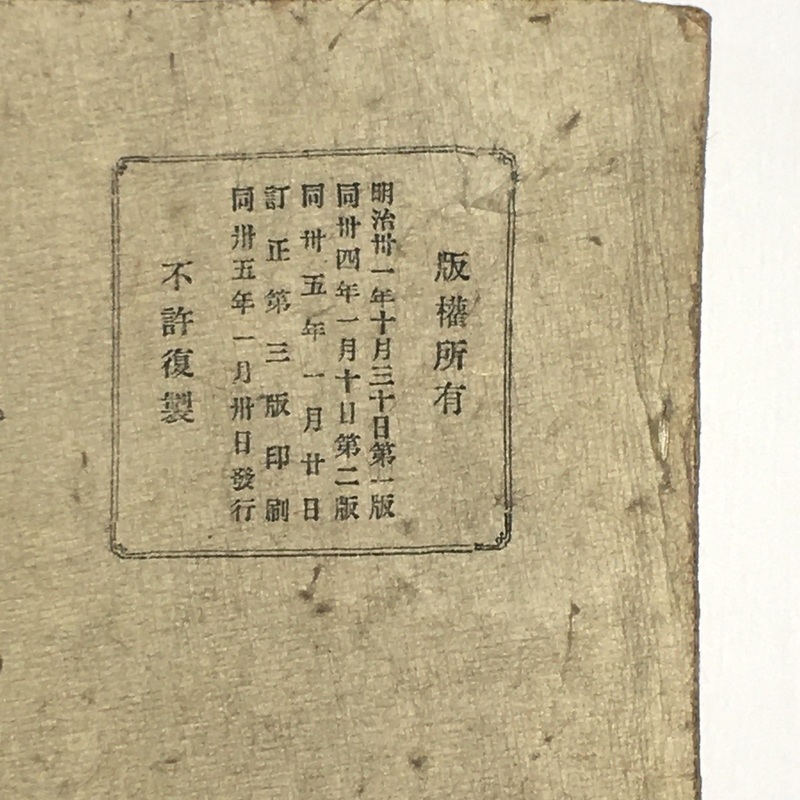 版權所有
明治卅一年十月三十日第一版
同卅四年一月十日第二版
同卅五年一月廿日
訂正第三版印刷
同卅五年一月卅日發行
不許復製